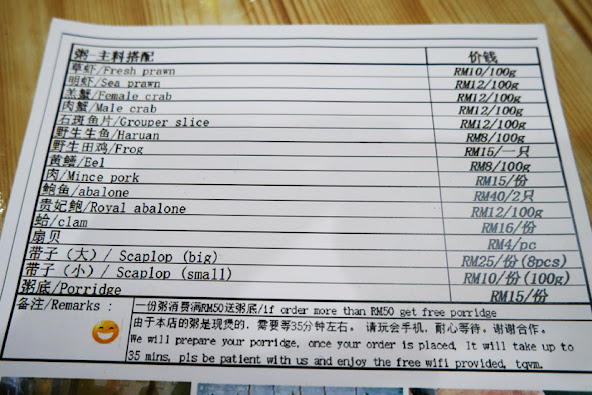 粥-主料搭配 价钱
草虾/Fresh prawn RM10/100g
明虾/Sea prawn RM12/100g
羔蟹/Female crab RM12/100g
肉蟹/Male crab RM12/100g
石斑鱼片/Grouper slice RM12/100g
野生生鱼/Haruan RM8/100g
野生田鸡/Frog RM15/一只
黄鳝/Eel RM8/100g
肉/Mince pork RM15/份
鲍鱼/abalone RM40/2只
贵妃鲍/Royal abalone RM12/100g
蛤/clam RM16/份
扇贝 RM4/pc
带子（大）/ Scaplop (big) RM25/份(8pcs)
带子（小）/ Scaplop (small) RM10/份(100g)
粥底/Porridge RM15/份
备注/Remarks : 一份粥消费满RM50送粥底/if order more than RM50 get free porridge
由于本店的粥是现煲的, 需要等35分钟左右。 请玩会手机, 耐心等待。谢谢合作。
We will prepare your porridge, once your order is placed, It will take up to
35 mins, pls be patient with us and enjoy the free wifi provided, tqvm.